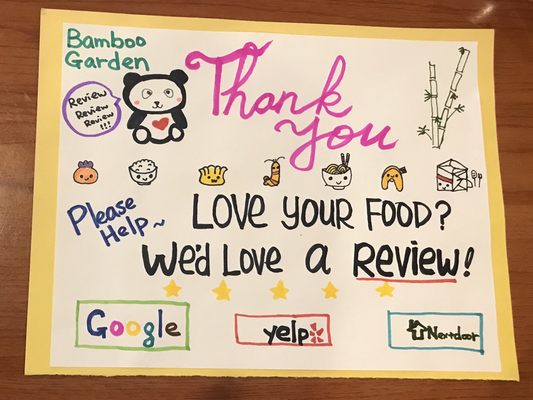 Bamboo
Garden
Review
Review
Review
!!!
Thank
you
Please
Help~
LOVE YOUR FOOD?
We'd LOVE a REVIEW!
Google
yelp
Nextdoor